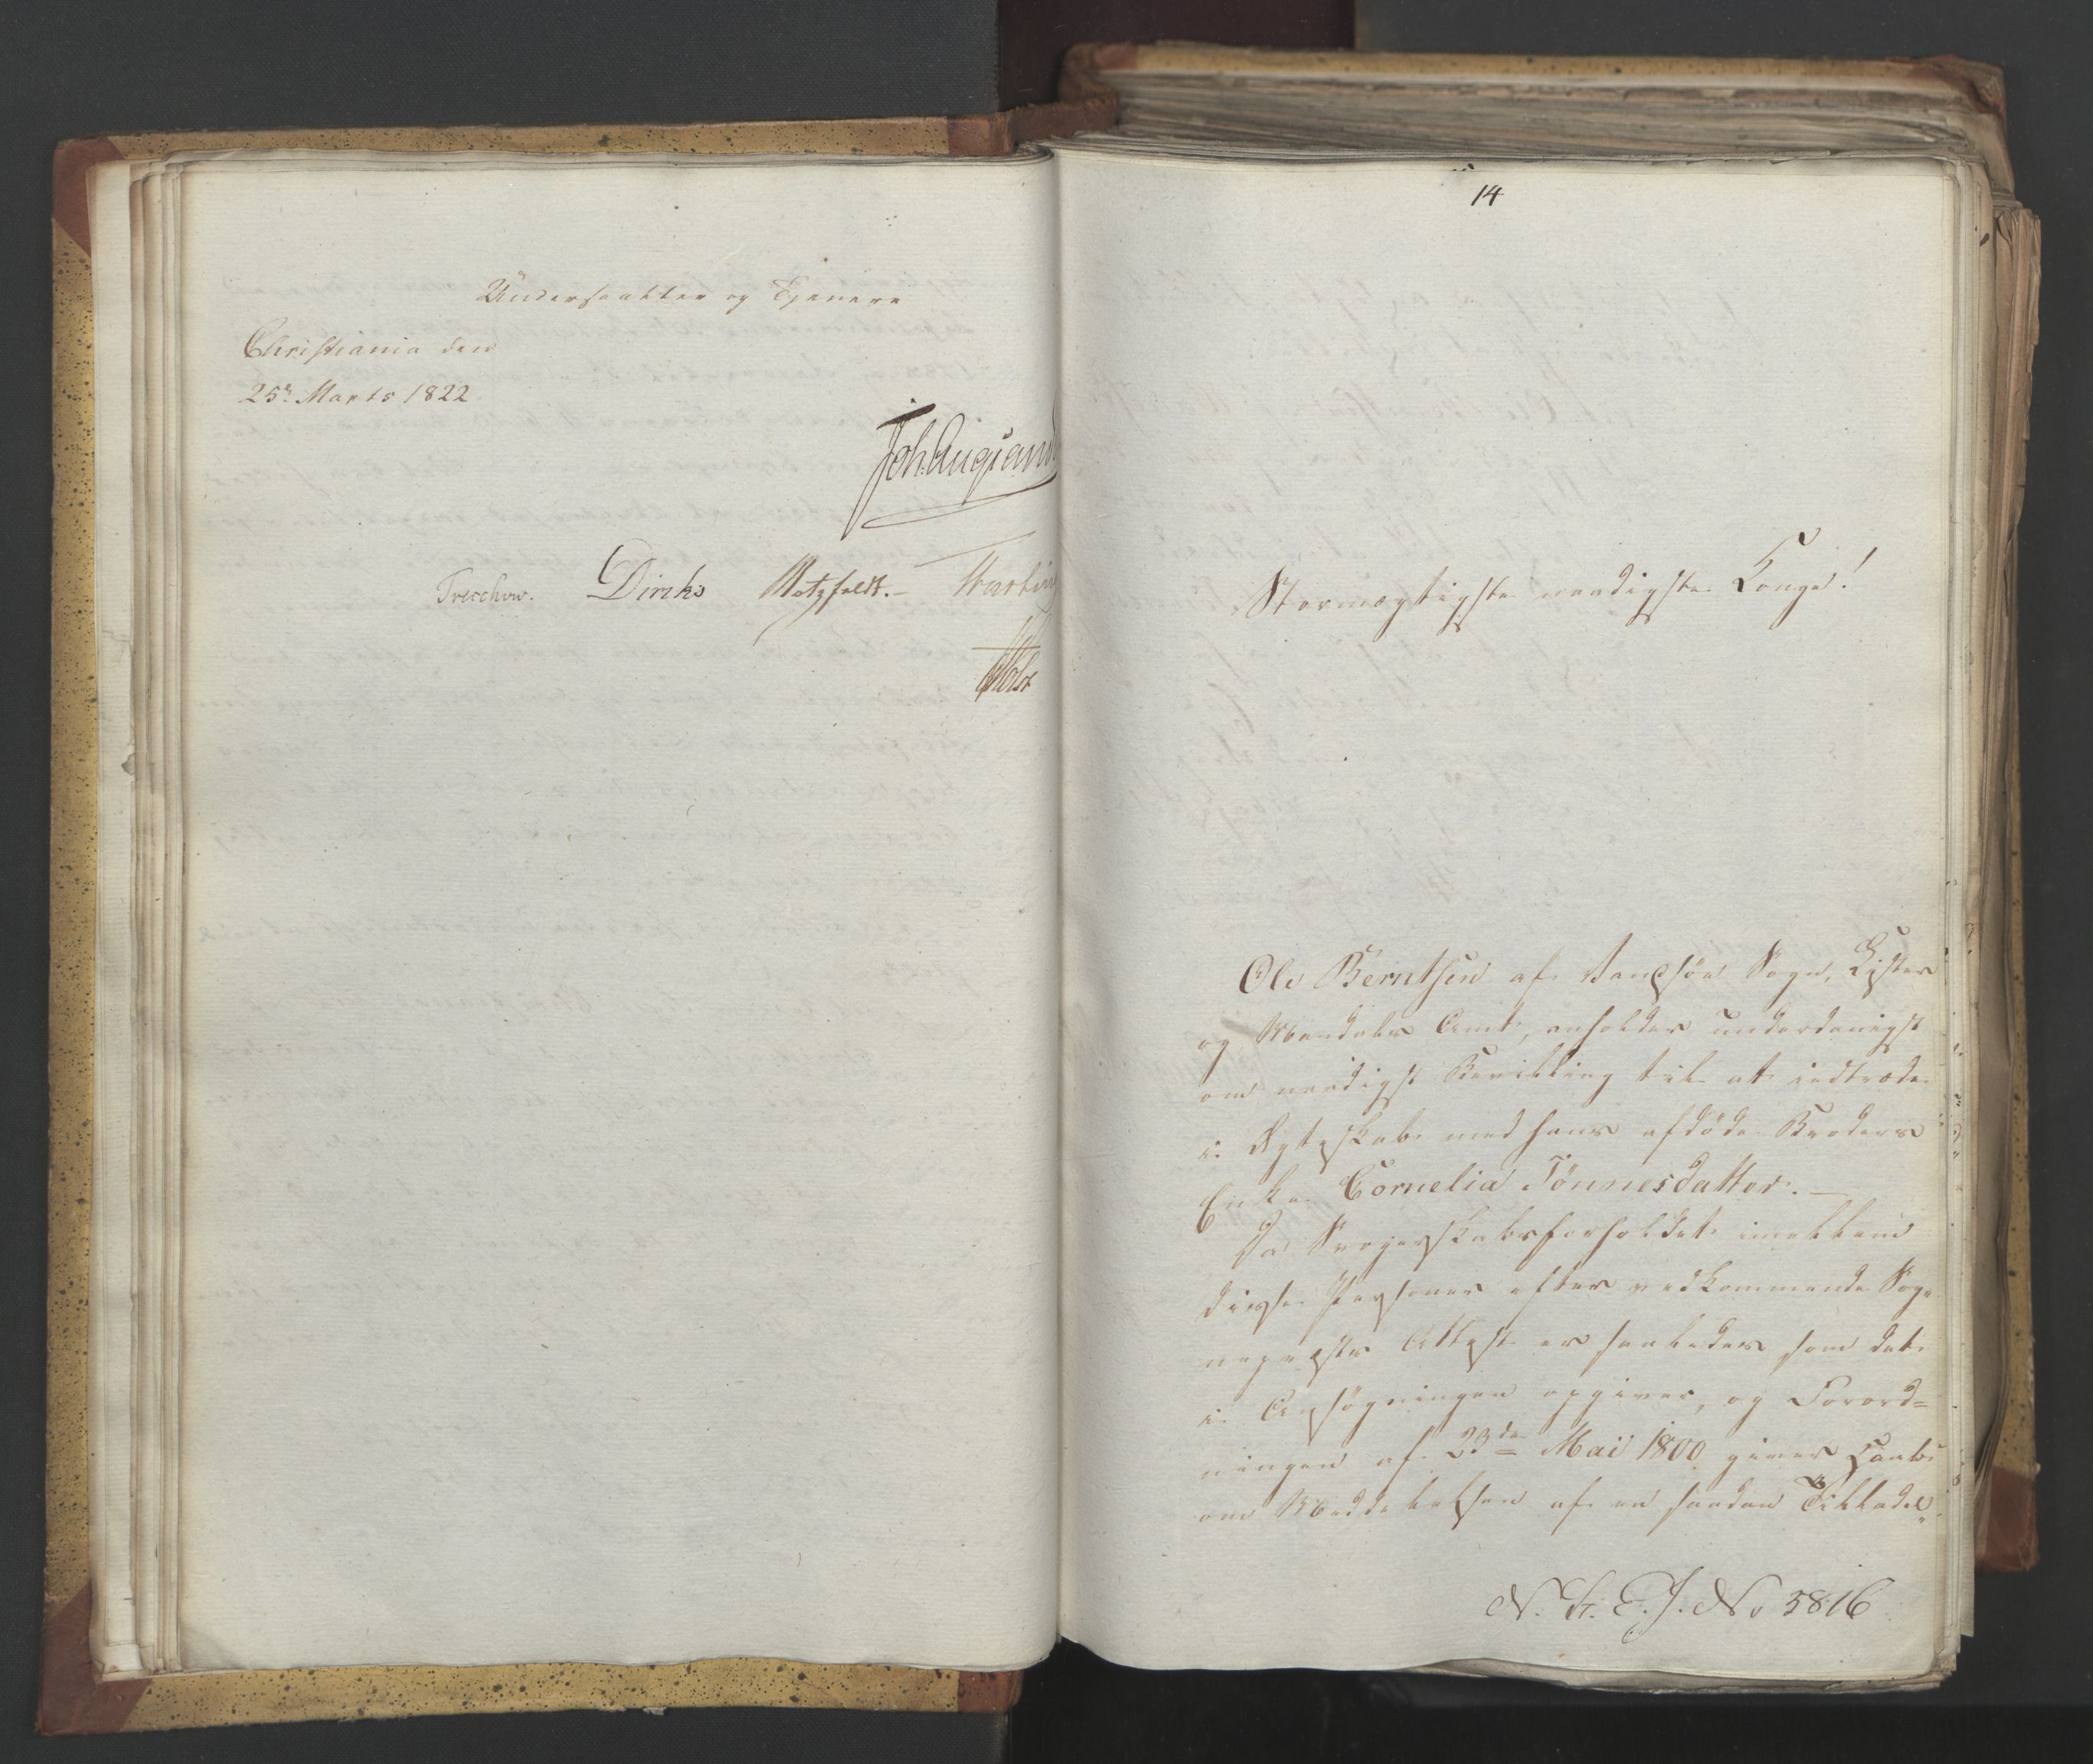 Undersaatter og Tjenere
Christiania den
25de Marts 1822
Joh. Aug. Sand
Treschow. Diriks Motzfeldt.- 
Holst
14
Stormægtigste naadigste Konge!
Ole Berntsen af Vansøe Sogn, Lister
og Mandals Amt, anholder underdanigst
om naadigst Bevilling til at indtræde
i Ægteskab med hans afdøde Broders
Enke Cornelia Tønnesdatter.
Da Svogerskabsforholdet imellem
disse Personer efter vedkommende Sog-
nepræsts Attest er saaledes som det
i Ansøgningen opgives, og Forord=
ningen af 23de Mai 1800 giver Haab
om Meddelelsen af en saadan Tilladel-
N. St. E. J. No 5816